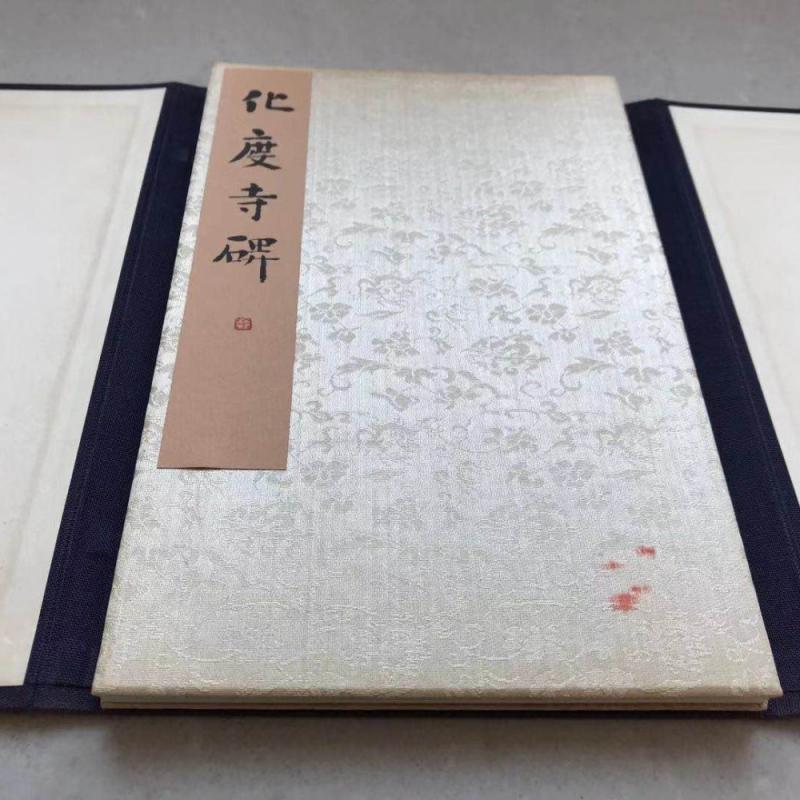 化度寺碑